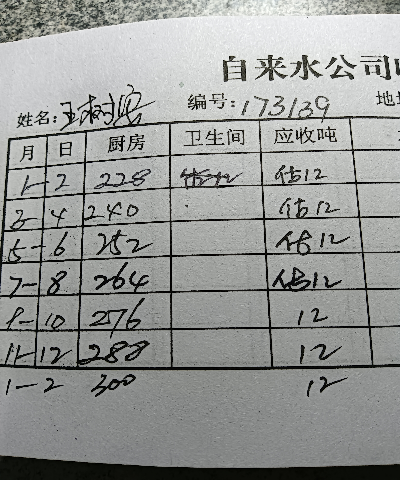 自来水公司
姓名: 王树 编号: 173139 地
月 日 厨房 卫生间 应收吨
1-2 228 估12
3-4 240 估12
5-6 252 估12
7-8 264 估12
9-10 276 12
11-12 288 12
1-2 300 12